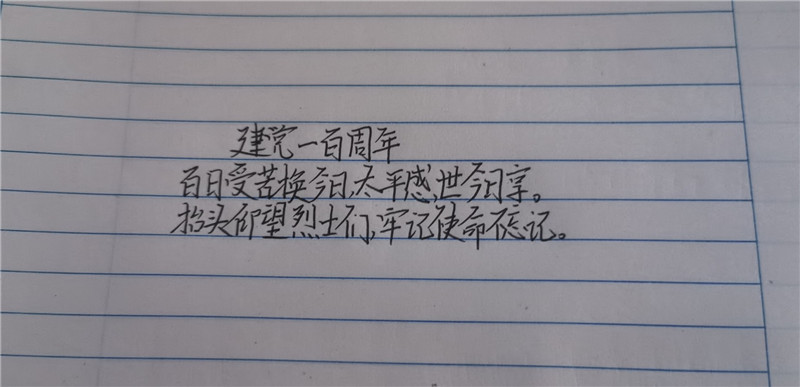 建党一百周年
百日受苦换今日,太平感世今日享。
抬头仰望烈士们,牢记使命不忘记。